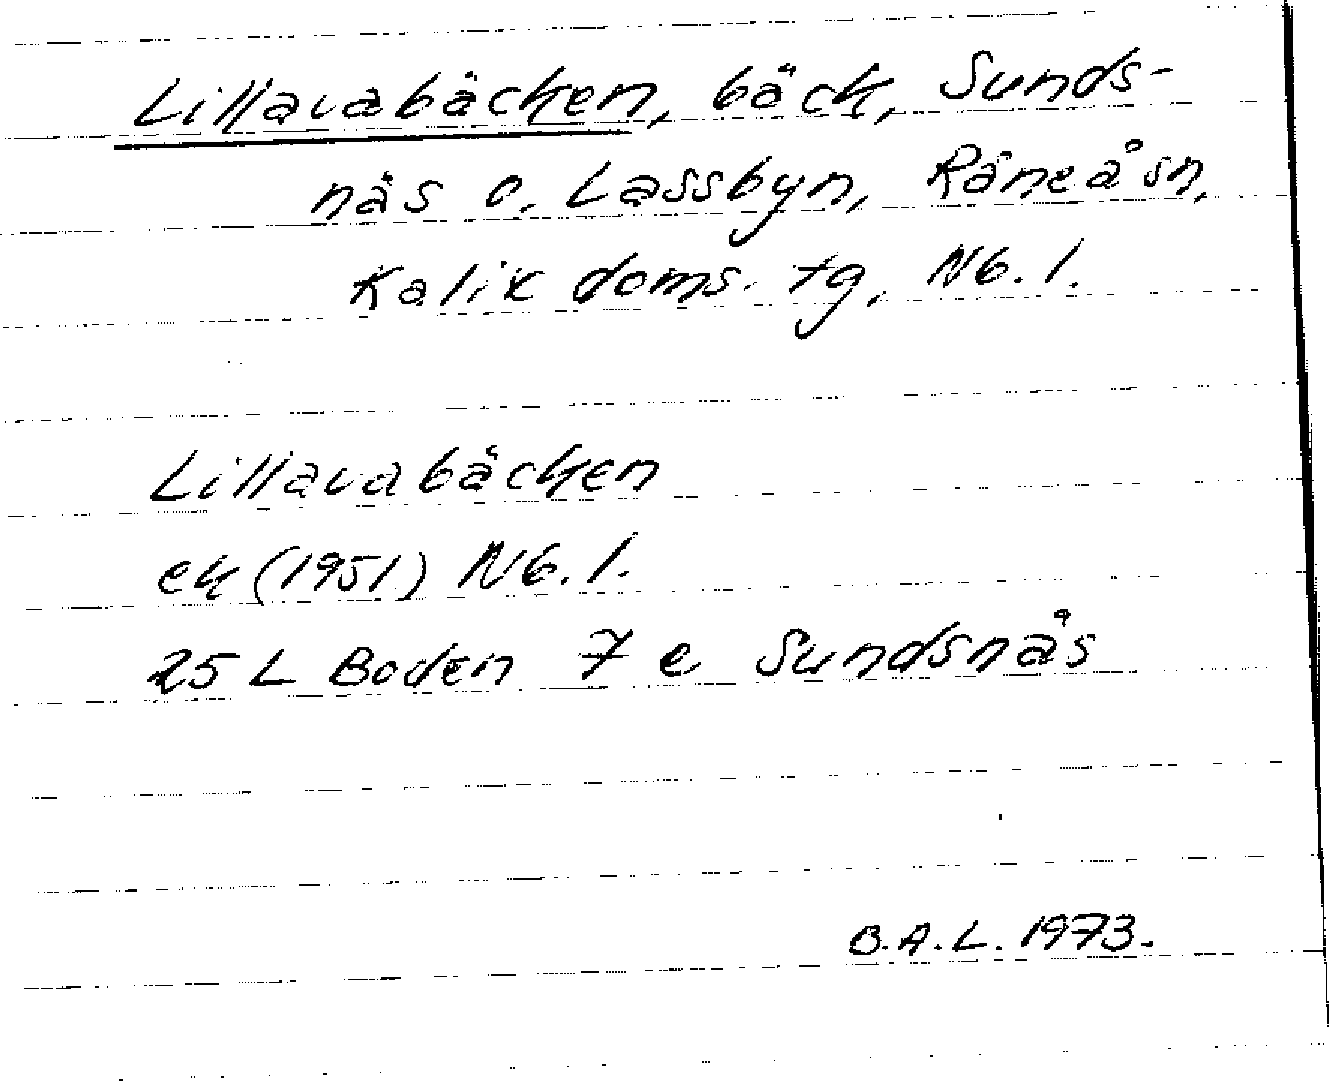 Lillavabäcken, bäck, Sunds-
näs o. Lassbyn, Råneå sn,
Kalix doms. tg, Nb. l.
Lillavabäcken
ek (1951) Nb. l.
25 L Boden 7 e Sundsnäs
B.A.L. 1973.